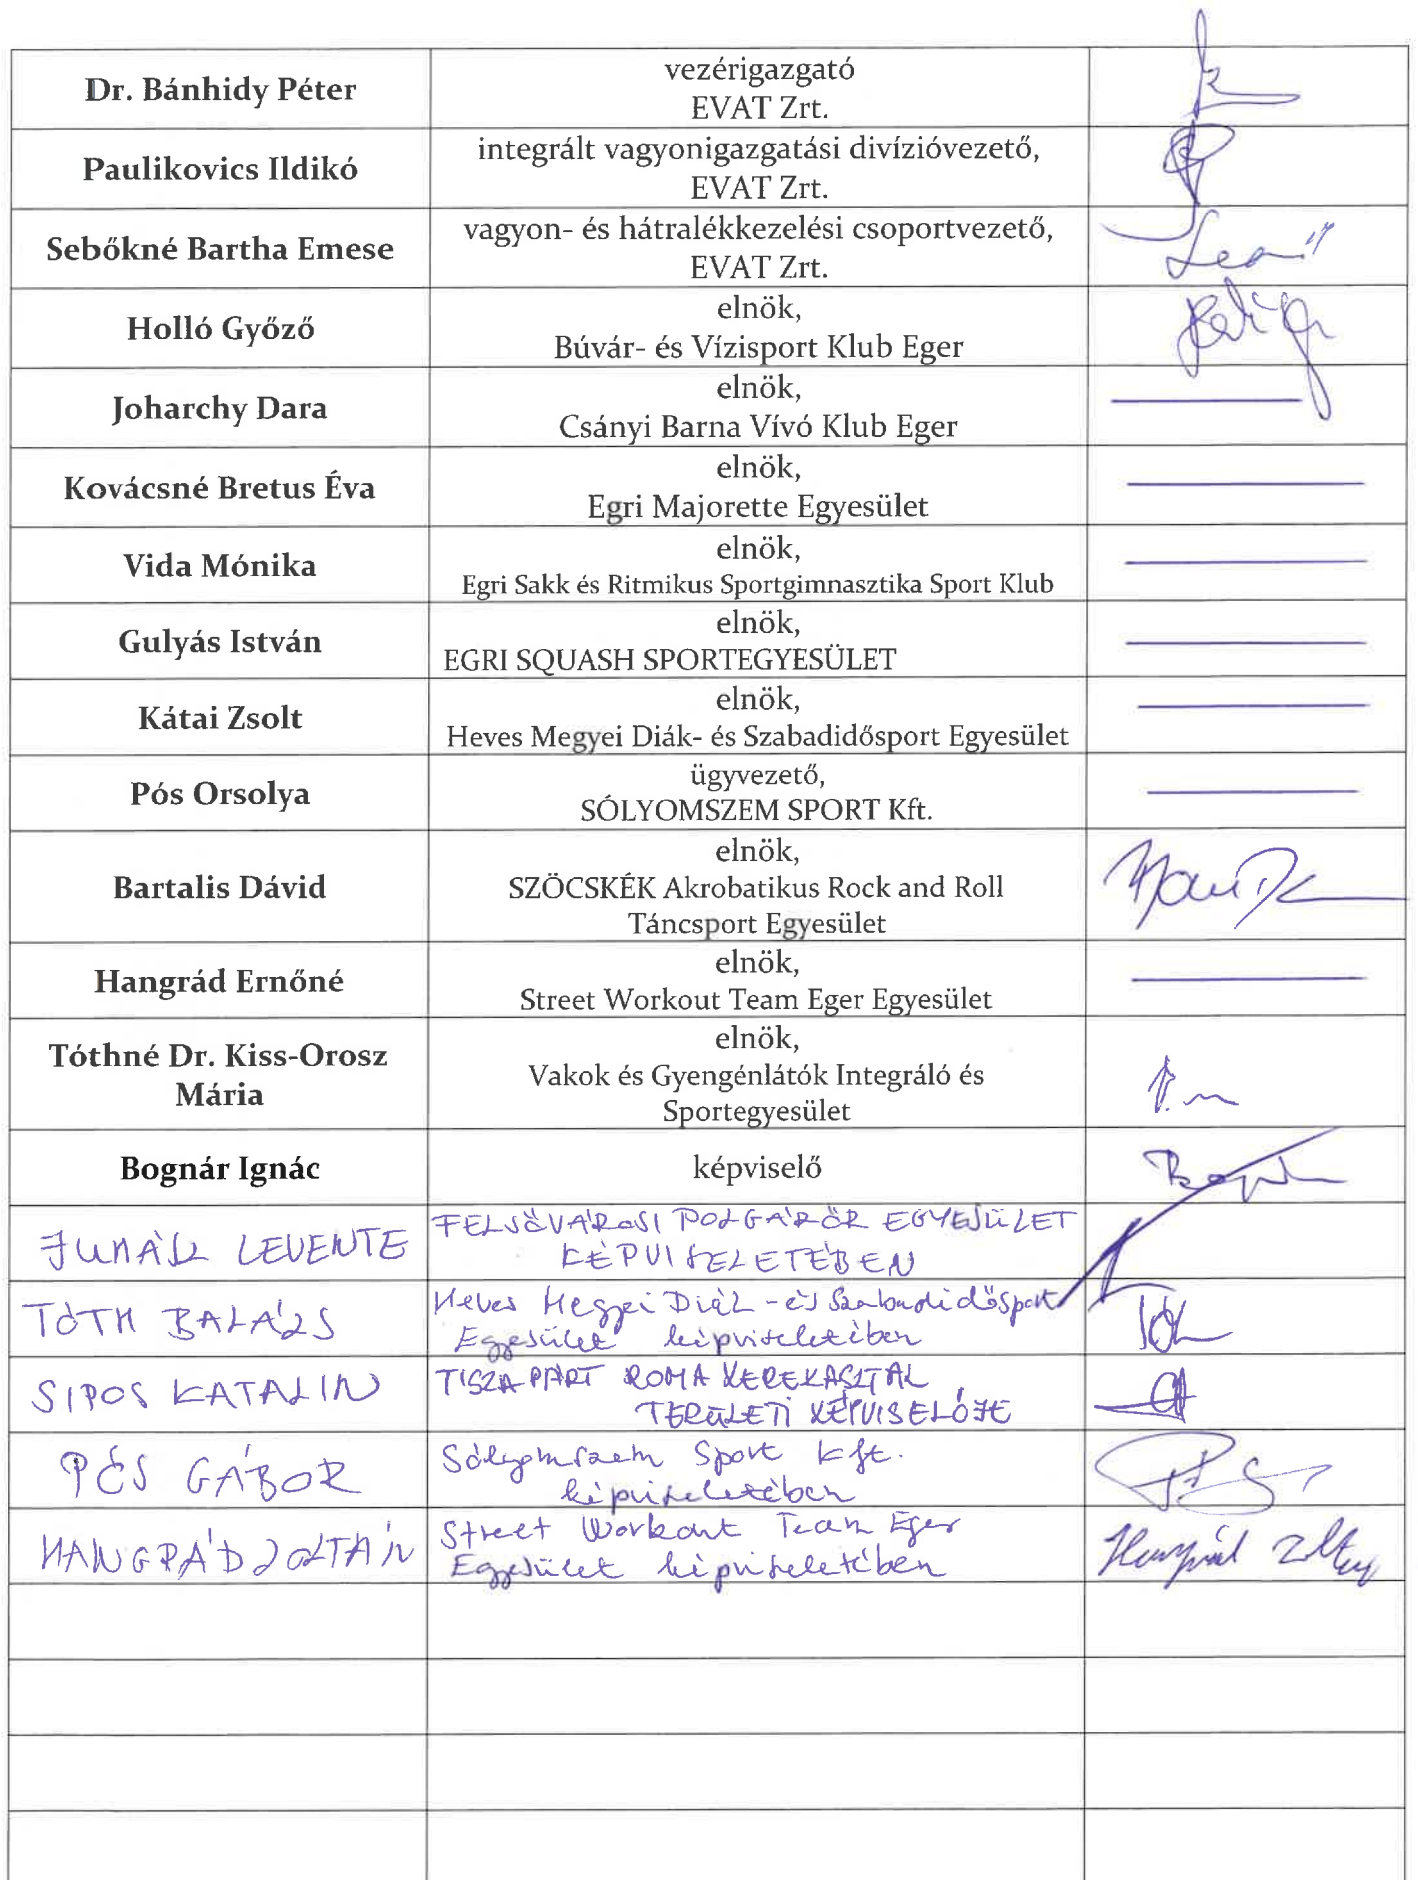 Dr. Bánhidy Péter
vezérigazgató
EVAT Zrt.
Paulikovics Ildikó
integrált vagyonigazgatási divízióvezető,
EVAT Zrt.
Sebőkné Bartha Emese
vagyon- és hátralékkezelési csoportvezető,
EVAT Zrt.
Holló Győző
elnök,
Búvár- és Vízisport Klub Eger
Joharchy Dara
elnök,
Csányi Barna Vívó Klub Eger
Kovácsné Bretus Éva
elnök,
Egri Majorette Egyesület
Vida Mónika
elnök,
Egri Sakk és Ritmikus Sportgimnasztika Sport Klub
Gulyás István
elnök,
EGRI SQUASH SPORTEGYESÜLET
Kátai Zsolt
elnök,
Heves Megyei Diák- és Szabadidősport Egyesület
Pós Orsolya
ügyvezető,
SÓLYOMSZEM SPORT Kft.
Bartalis Dávid
elnök,
SZÖCSKÉK Akrobatikus Rock and Roll
Táncsport Egyesület
Hangrád Ernőné
elnök,
Street Workout Team Eger Egyesület
Tóthné Dr. Kiss-Orosz
Mária
elnök,
Vakok és Gyengénlátók Integráló és
Sportegyesület
Bognár Ignác
képviselő
LEVENTE
FELSŐVÁROSI POLGÁRŐR EGYESÜLET
KÉPVISELETÉBEN
TÓTH BALÁZS
Heves Megyei Diák - és Szabadidősport
Egyesület képviseletében
SIPOS KATALIN
TISZAPÁRT ROMA KEREKASZTAL
TERÜLETI KÉPVISELŐJE
PÓS GÁBOR
Sólyomszem Sport Kft.
képviseletében
HANGRÁD ZOLTÁN
Street Workout Team Eger
Egyesület képviseletében
Hangrád Zoltán